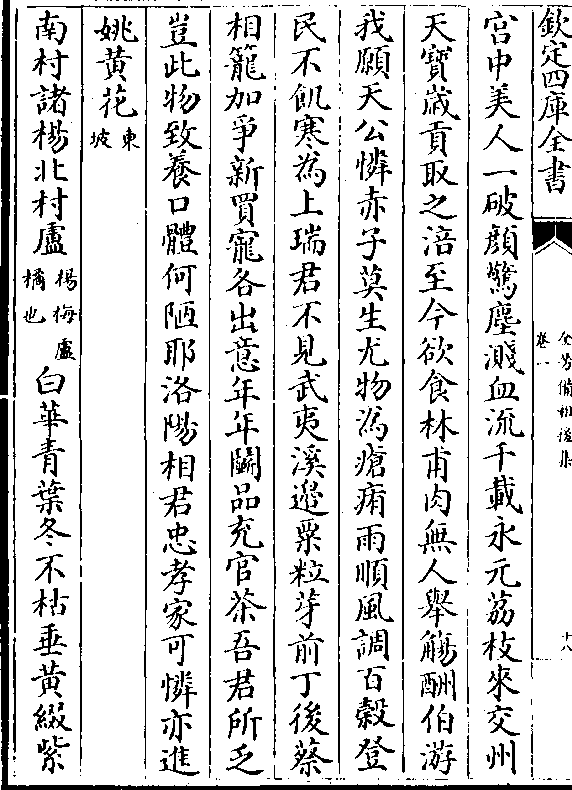 欽定四庫全書
全芳備祖後集
卷一
十八
宮中美人一破顏驚塵濺血流千載永元荔枝來交州
天寶歲貢取之涪至今欲食林甫肉無人舉觴酬伯游
我願天公憐赤子莫生尤物為瘡痏雨順風調百穀登
民不飢寒為上瑞君不見武夷溪邊粟粒芽前丁後蔡
相籠加爭新買寵各出意年年鬬品充官茶吾君所乏
豈此物致養口體何陋耶洛陽相君忠孝家可憐亦進
姚黃花東坡
南村諸楊北村盧楊梅盧橘也白華青葉冬不枯垂黃綴紫